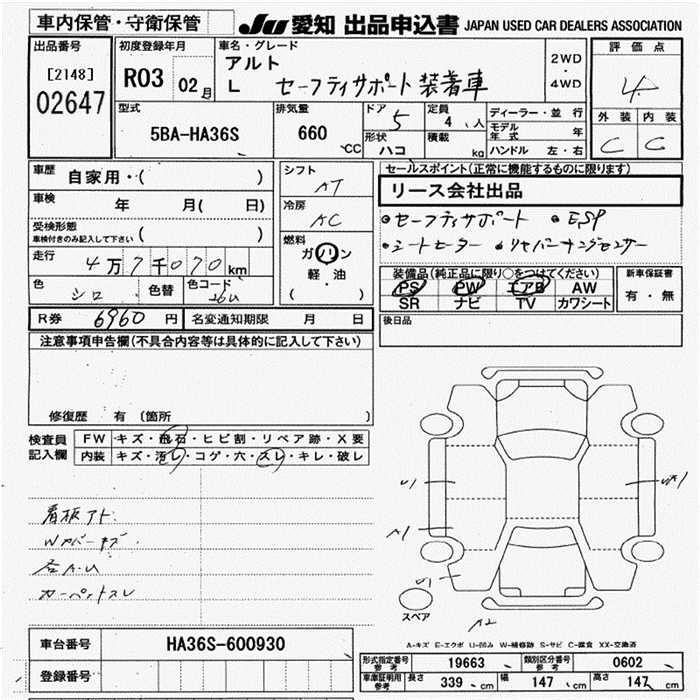 車内保管・守衛保管
JU 愛知 出品申込書 JAPAN USED CAR DEALERS ASSOCIATION
出品番号 [2148] 02647
初度登録年月 R03 02月
車名・グレード アルト
L セーフティサポート装着車
2WD・4WD
評価点 4
外装 C 内装 C
型式 5BA-HA36S
排気量 660 CC
ドア 5 定員 4 人
形状 ハコ 積載 kg
ディーラー・並行
モデル年式 年
ハンドル 左・右
車歴 自家用・( )
車検 年 月( 日)
受検形態 車検付きのみ記入して下さい ( )
走行 4万7千070km
色 シロ 色替 色コード 26U
シフト AT
冷房 AC
燃料 ガソリン
軽・油
( )
セールスポイント(正常に機能するものに限ります)
リース会社出品
◎セーフティサポート ◎ESP
◎シートヒーター ◎リヤパーキングセンサー
装備品(純正品に限り○をつけてください)
PS PW エアB AW
SR ナビ TV カワシート
新車保証書 有・無
R券 6960円 名変通知期限 月 日
後日品
注意事項申告欄(不具合内容等は具体的に記入して下さい)
修復歴 有 (箇所 )
検査員記入欄
FW キズ・飛石・ヒビ割・リペア跡・X要
内装 キズ・汚レ・コゲ・穴・スレ・キレ・破レ
看板アト
Wカバーキズ
カーペットスレ
U1
A1
U1
A2
スペア
A-キズ E-エクボ U-凹み W-補修跡 S-サビ C-腐食 XX-交換済
車台番号 HA36S-600930
登録番号
形式指定番号 参考 19663 類別区分番号 参考 0602
車庫証明用 参考 長さ 339 cm 幅 147 cm 高さ 147 cm